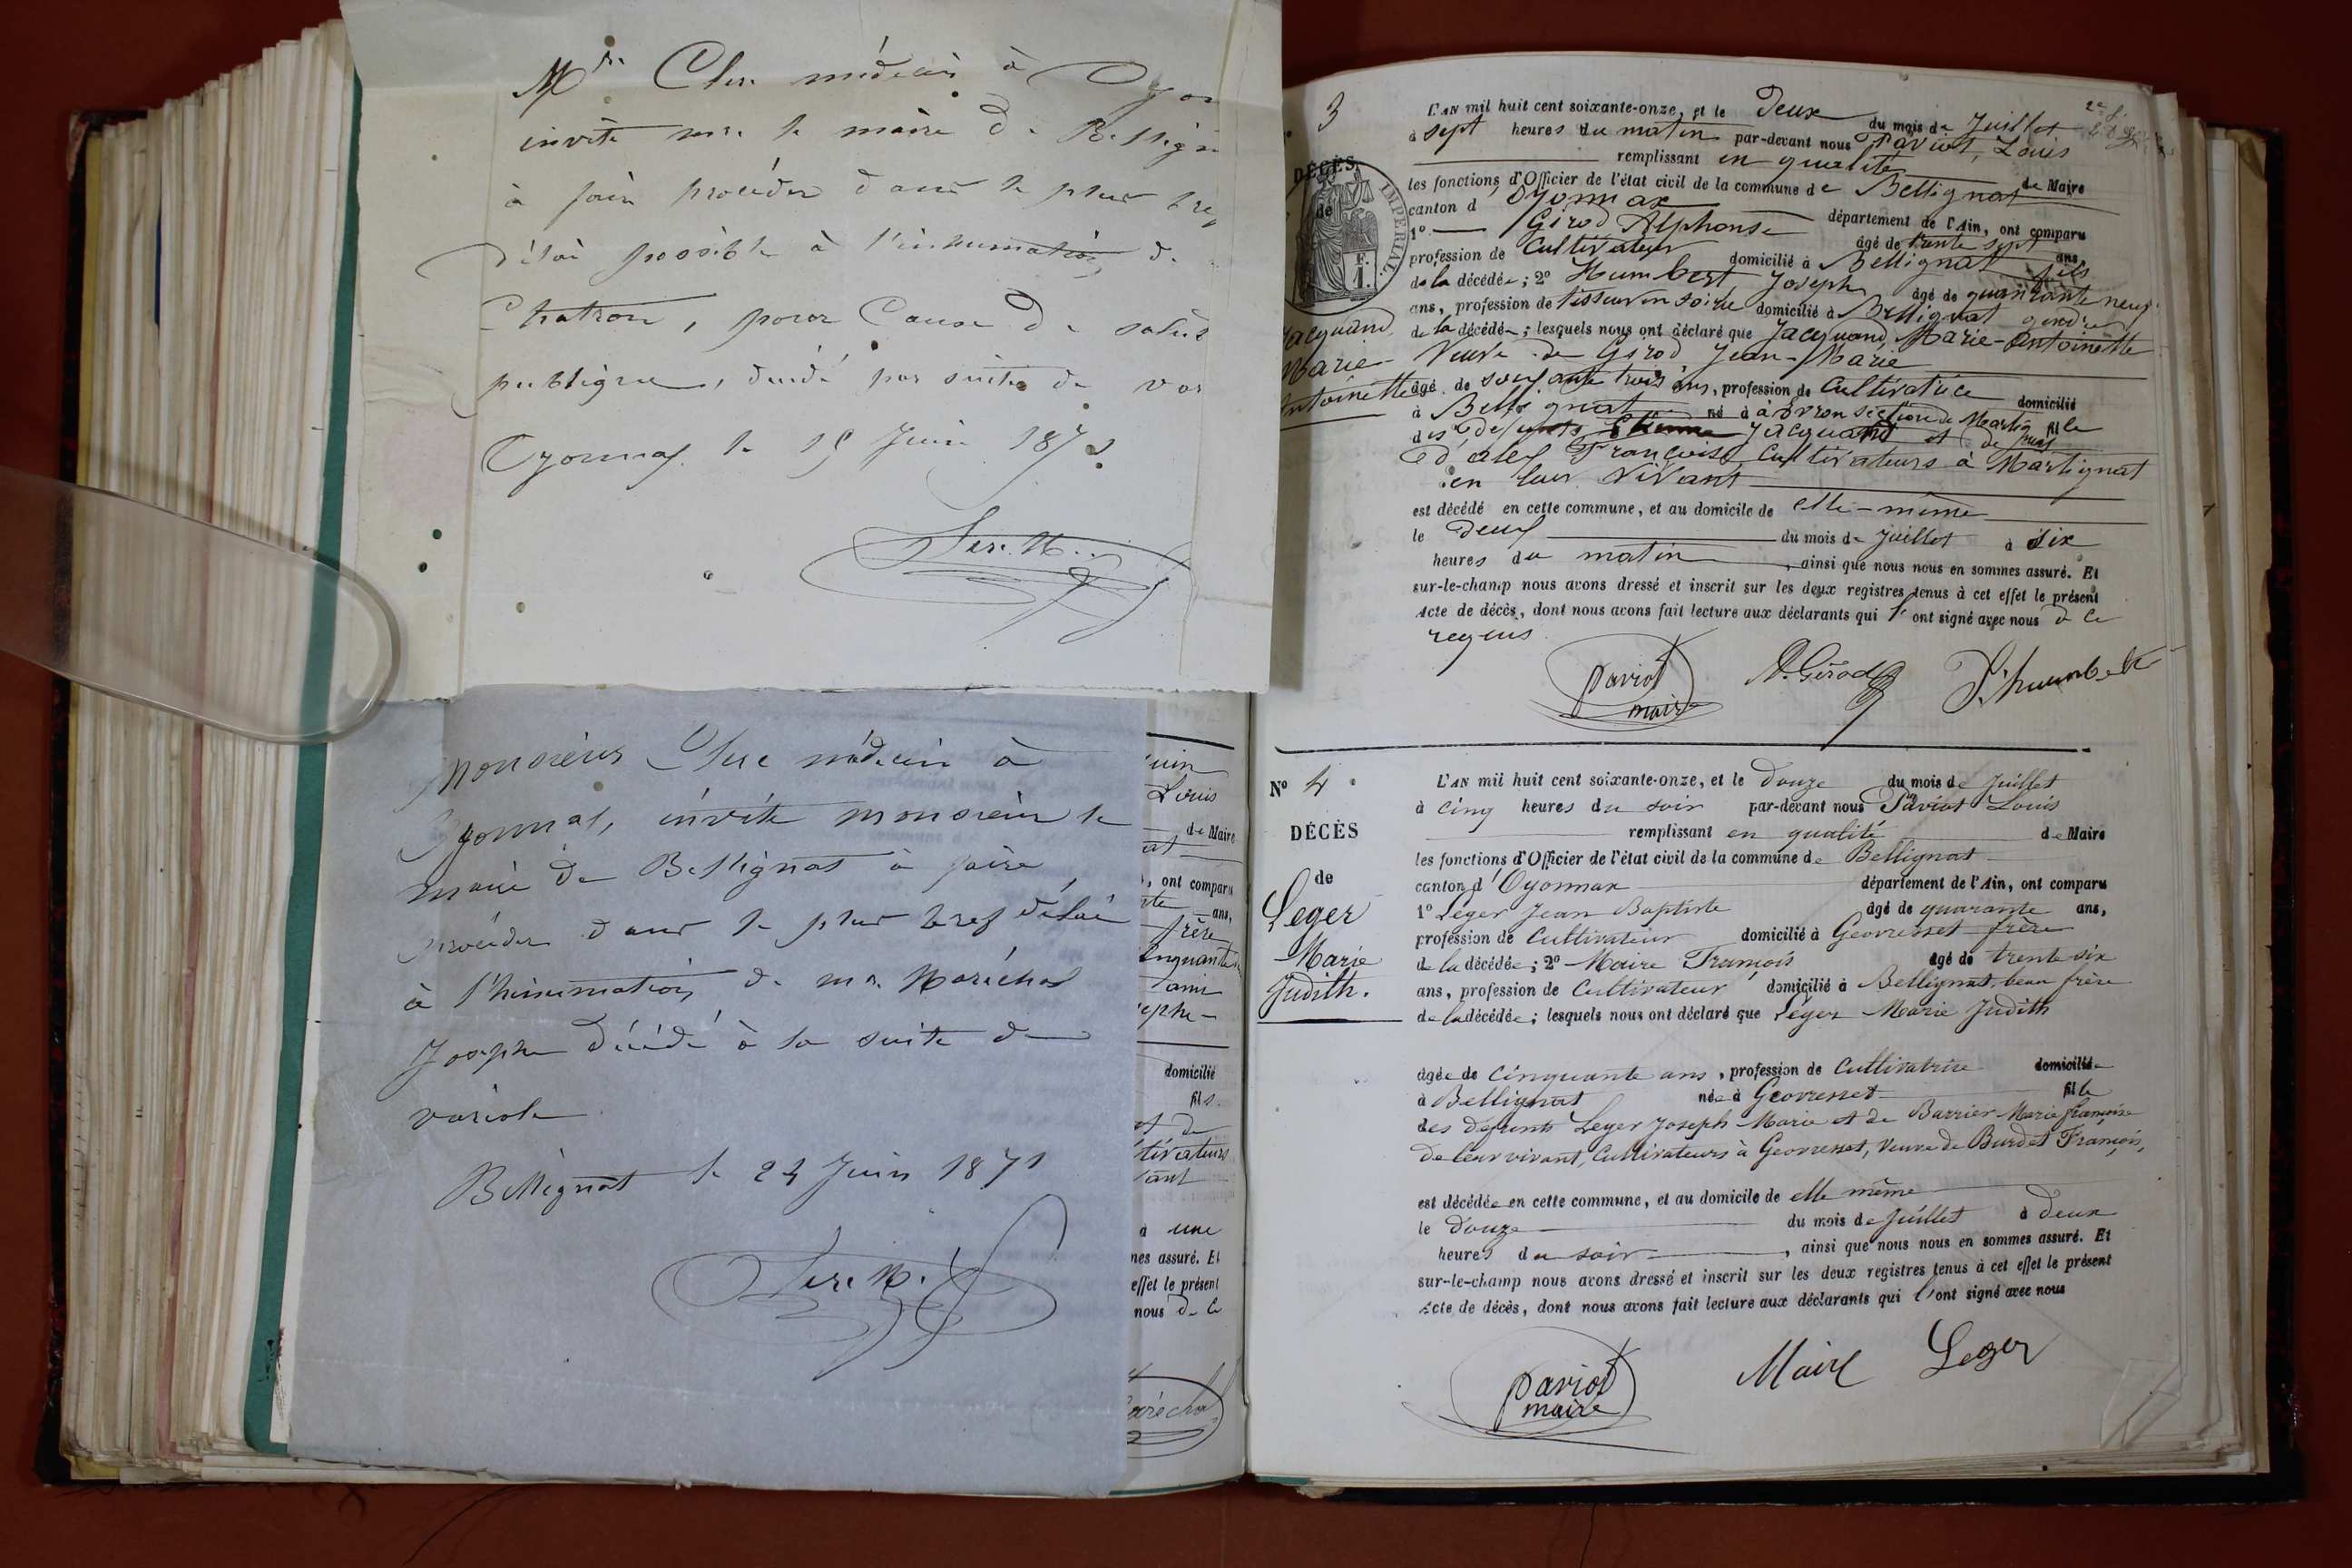 Mr. Clerc médecin à Oyon
invite mr. le maire de Bellign
à faire procéder dans le plus bref
délai possible à l'inhumation de
Chatron, pour cause de salut
publique, décédé par suite de var
Oyonnax le 15 Juin 1871.
Monsieur Clerc médecin à
Oyonnax, invite monsieur le
maire de Bellignat à faire
procéder dans le plus bref délai
à l'hinumation de mr. Maréchal
Joseph décédé à la suite de
variole
Bellignat le 24 Juin 1871
uin
Louis
de Maire
at
, ont comparu
nte ans,
frère
inquante
ami
seph-
domicilié
fils
et de
ltivateurs
vant
à une
mes assuré. Et
effet le présent
nous de ce
Maréchal
3
DÉCÈS
de
IMPÉRIAL.
F.
1.
Jacquand
Marie-
Antoinette
L'AN mil huit cent soixante-onze, et le Deux du mois de Juillet
à sept heures du matin par-devant nous Paviot, Louis
remplissant en qualité de Maire
les fonctions d'Officier de l'état civil de la commune de Bellignat
canton d'Oyonnax département de l'Ain, ont comparu
1° Girod Alphonse âgé de trente sept ans,
profession de Cultivateur domicilié à Bellignat fils
de la décédée; 2° Humbert Joseph âgé de quarante neuf
ans, profession de tisseur en soirie domicilié à Bellignat gendre
de la décédée; lesquels nous ont déclaré que Jacquand, Marie-Antoinette
Veuve de Girod Jean-Marie
âgé de soixante trois ans, profession de Cultivatrice domicilié
à Bellignat né à à Evron section de Martig fille
des défunts Etienne Jacquand et de puis
d'alex Françoise Cultivateurs à Martignat
en leur Vivant
est décédé en cette commune, et au domicile de elle-même
le Deux du mois de Juillet à Six
heures du matin, ainsi que nous nous en sommes assuré. Et
sur-le-champ nous avons dressé et inscrit sur les deux registres tenus à cet effet le présent
Acte de décès, dont nous avons fait lecture aux déclarants qui l'ont signé avec nous de ce
requis
Paviot
maire
A. Girod
J. humbert
N° 4
DÉCÈS
de
Leger
Marie
Judith.
L'AN mil huit cent soixante-onze, et le Douze du mois de Juillet
à cinq heures du soir par-devant nous Paviot Louis
remplissant en qualité de Maire
les fonctions d'Officier de l'état civil de la commune de Bellignat
canton d'Oyonnax département de l'Ain, ont comparu
1° Leger Jean Baptiste âgé de quarante ans,
profession de Cultivateur domicilié à Geovresset frère
de la décédée; 2° Maire François âgé de trente-six
ans, profession de Cultivateur domicilié à Bellignat, beau frère
de la décédée; lesquels nous ont déclaré que Léger Marie Judith
âgée de cinquante ans, profession de Cultivatrice domiciliée
à Bellignat née à Geovresset fille
des défunts Leger Joseph Marie et de Barrier Marie françoise
de leur vivant, Cultivateurs à Geovresset, Veuve de Burdet François,
est décédée en cette commune, et au domicile de elle même
le Douze du mois de Juillet à Deux
heures du soir, ainsi que nous nous en sommes assuré. Et
sur-le-champ nous avons dressé et inscrit sur les deux registres tenus à cet effet le présent
Acte de décès, dont nous avons fait lecture aux déclarants qui l'ont signé avec nous
Paviot
maire
Maire
Leger